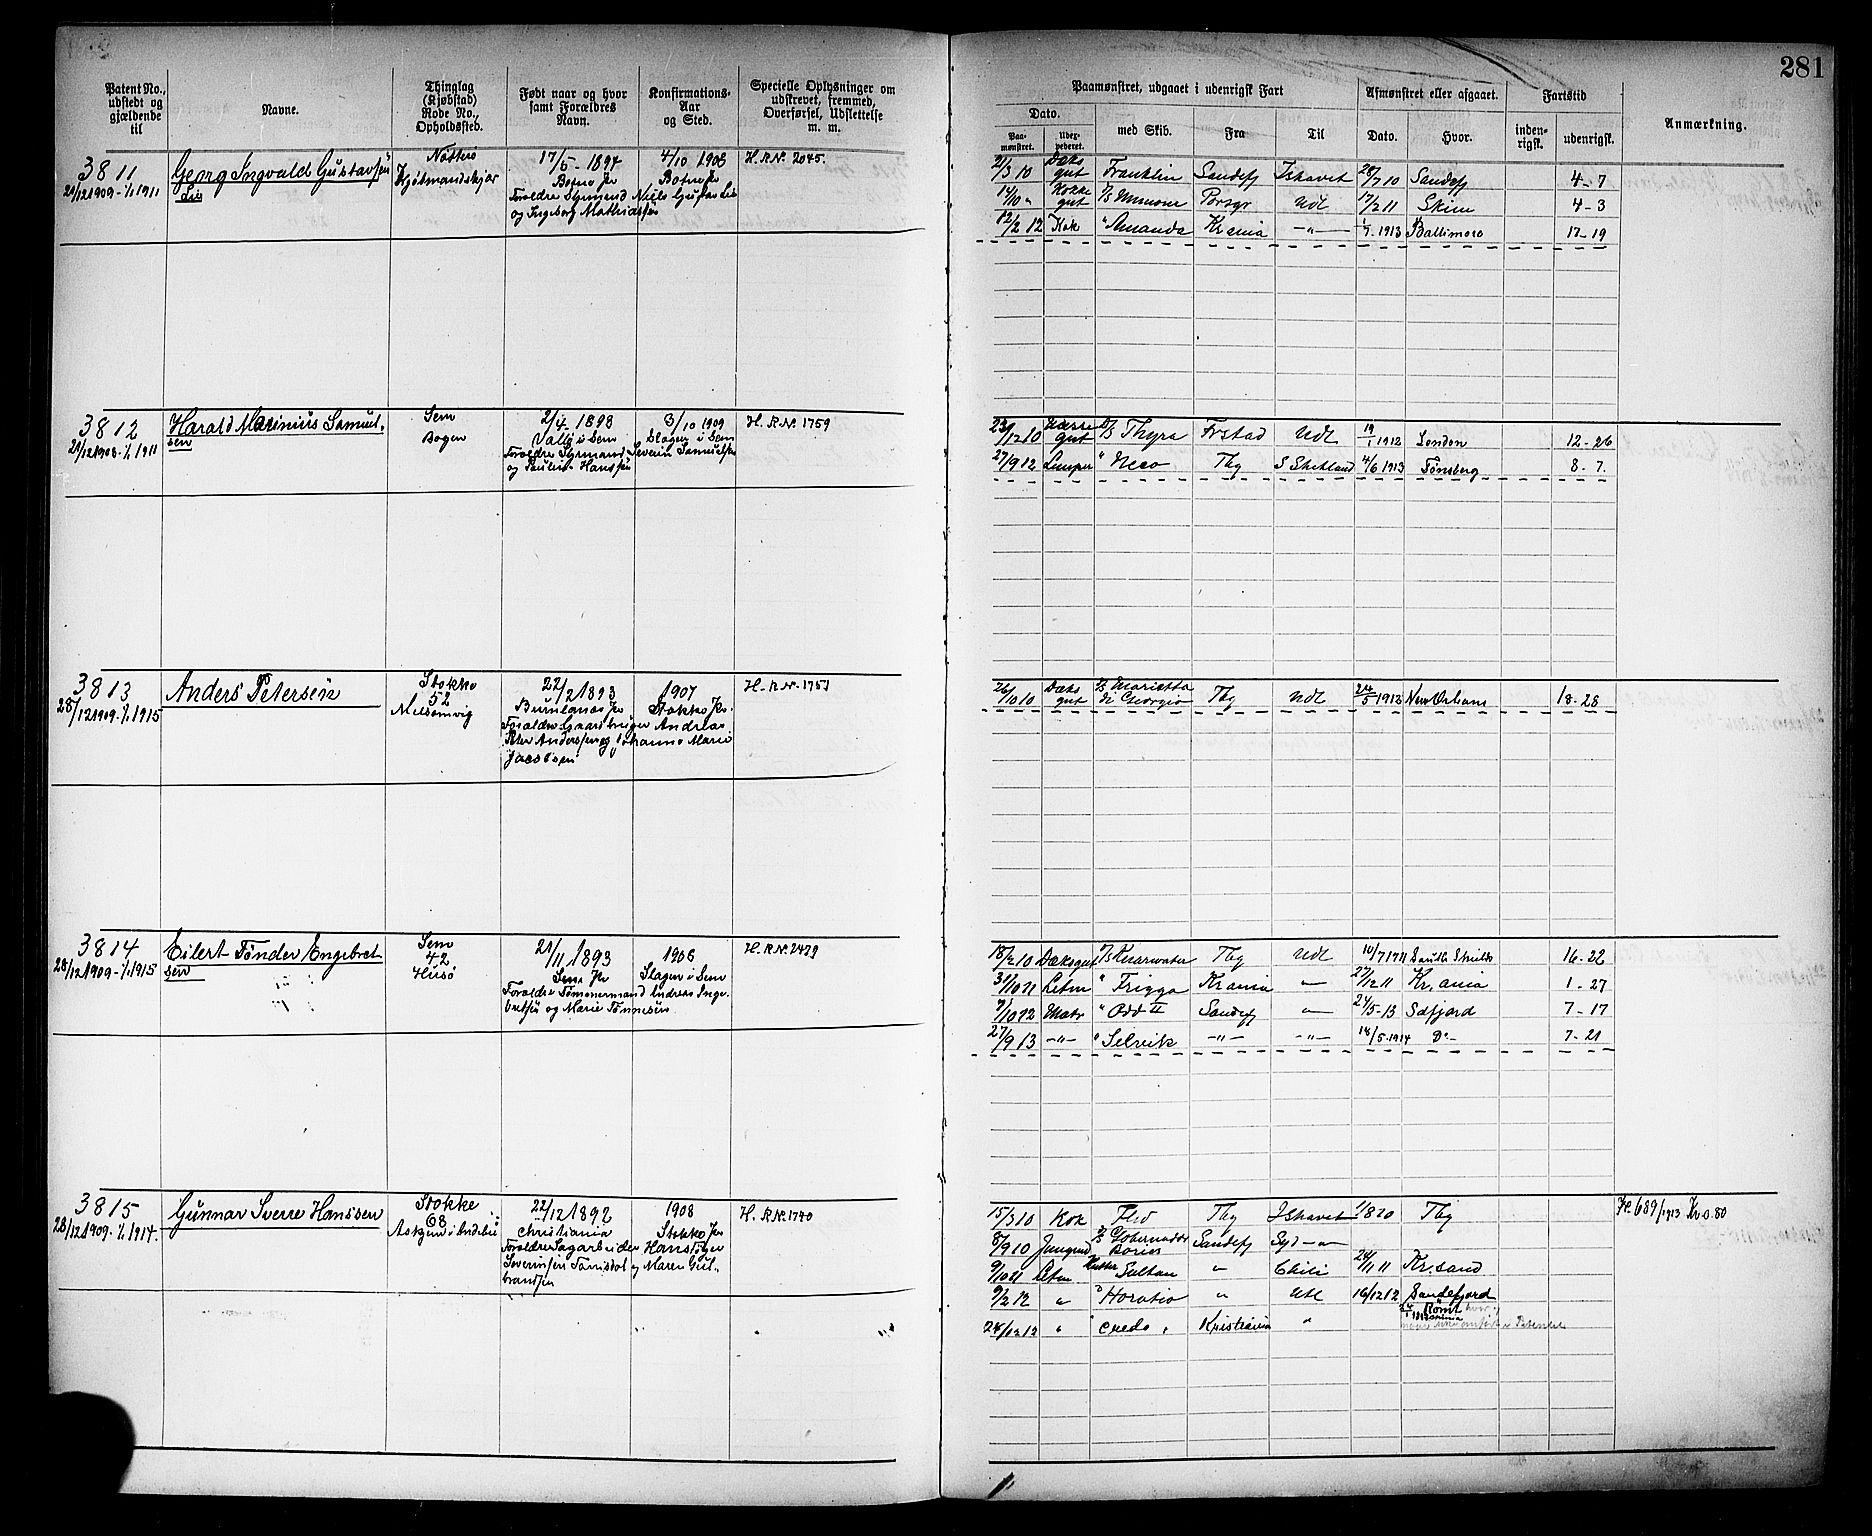 281
Patent No., udstedt og gjældende til
Navne.
Thinglag (Kjøbstad) Rode No., Opholdssted.
Født naar og hvor samt Forældres Navn.
Konfirmations- Aar og Sted.
Specielle Oplysninger om udskrevet, fremmed, Overførsel, Udslettelse m. m.
Paamønstret, udgaaet i udenrigsk Fart
Afmønstret eller afgaaet.
Fartstid
Anmærkning.
Dato.
Paamønstret.
med Skib.
Fra
Til
Dato.
Hvor.
indenrigsk.
udenrigsk.
3811
Georg Ingvald Gustavsen
Lie
Nøtterø
17/5-1894
4/10 1908
H.R.N. 2045.
Botne Pr
Botne Pr
Forældre Sømand Niels Gustav Lie
og Ingeborg Mathiasen
21/3 10 Dæksgut Franklin Sandefj Ishavet 28/7 10 Sandefj 4-7
14/10 " Kokkegut Porsgr Udl 17/2 11 Skien 4-3
12/2 12 Kok " Amanda Krania -"- 1913 Baltimore 17-19
3812
Harald Marinius Samuel-
sen
Sem
2/4-1893
3/10 1909
H.R.N. 1759
Vallø i Sem
Slagen i Sem
Forældre Sømand Severin Samuelsen
Hansen
23/12 10 Thyra Frstad Udl 19/1 1912 London 12-26
27/9 12 Lemper " Neco Tbg S Shetland 4/6 1913 Tønsberg 8-7.
3813
28/12 1909-1/1 1915
Anders Petersen
Stokke
52
Melsomvig
22/2 1893
1907
Stokke Pr.
Forældre Gaardbruger Andreas
Peter Andersen og Johanne Marie
Jacobsen
26/10 10 Dæksgut Marietta di Giorgio Tbg Udl 1913 New Orleans 18-28
3814
28/12 1909-1/1 1915
Eilert Tønder Engebret
sen
Sem
42
Husø
21/11 1893
1908
H.R.N. 2479
Sem Pr
Slagen i Sem
Forældre Tømmermand Andreas Enge-
bretsen og Marie Tønnesen
18/2 10 Dæksgut Tbg Udl 10/7 1911 South Shields 16-22
31/10 11 Letm " Frigga Krania -"- 27/12 11 Kr.ania 1-27
7/10 12 Matr " Odd II Sandefj -"- 24/5-13 Safjord 7-17
27/9 13 -"- " Selvik -"- -"- 18/5-1914 Do- 7-21
3815
28/12 1909-1/1 1914.
Gunnar Sverre Hanssen
Stokke
68
22/12 1892
1908
H.R.N. 1740
Christiania
Stokke Pr
Forældre Sagarbeider Hans
Severinsen og Maren Gul-
brandsen
15/3 10 Kok Tbg Ishavet 1/8 10 Tbg
Kr 0.80
8/9 10 Jungmd Gobernador Bories Sandefj Syd -"-
9/10 11 Letm Sultan " Chili 24/1 11 Kr.sand
9/2 12 " " Horatio " Udl 16/12 12 Sandefjord
28/12 12 " Credo Kristiania " Rømt